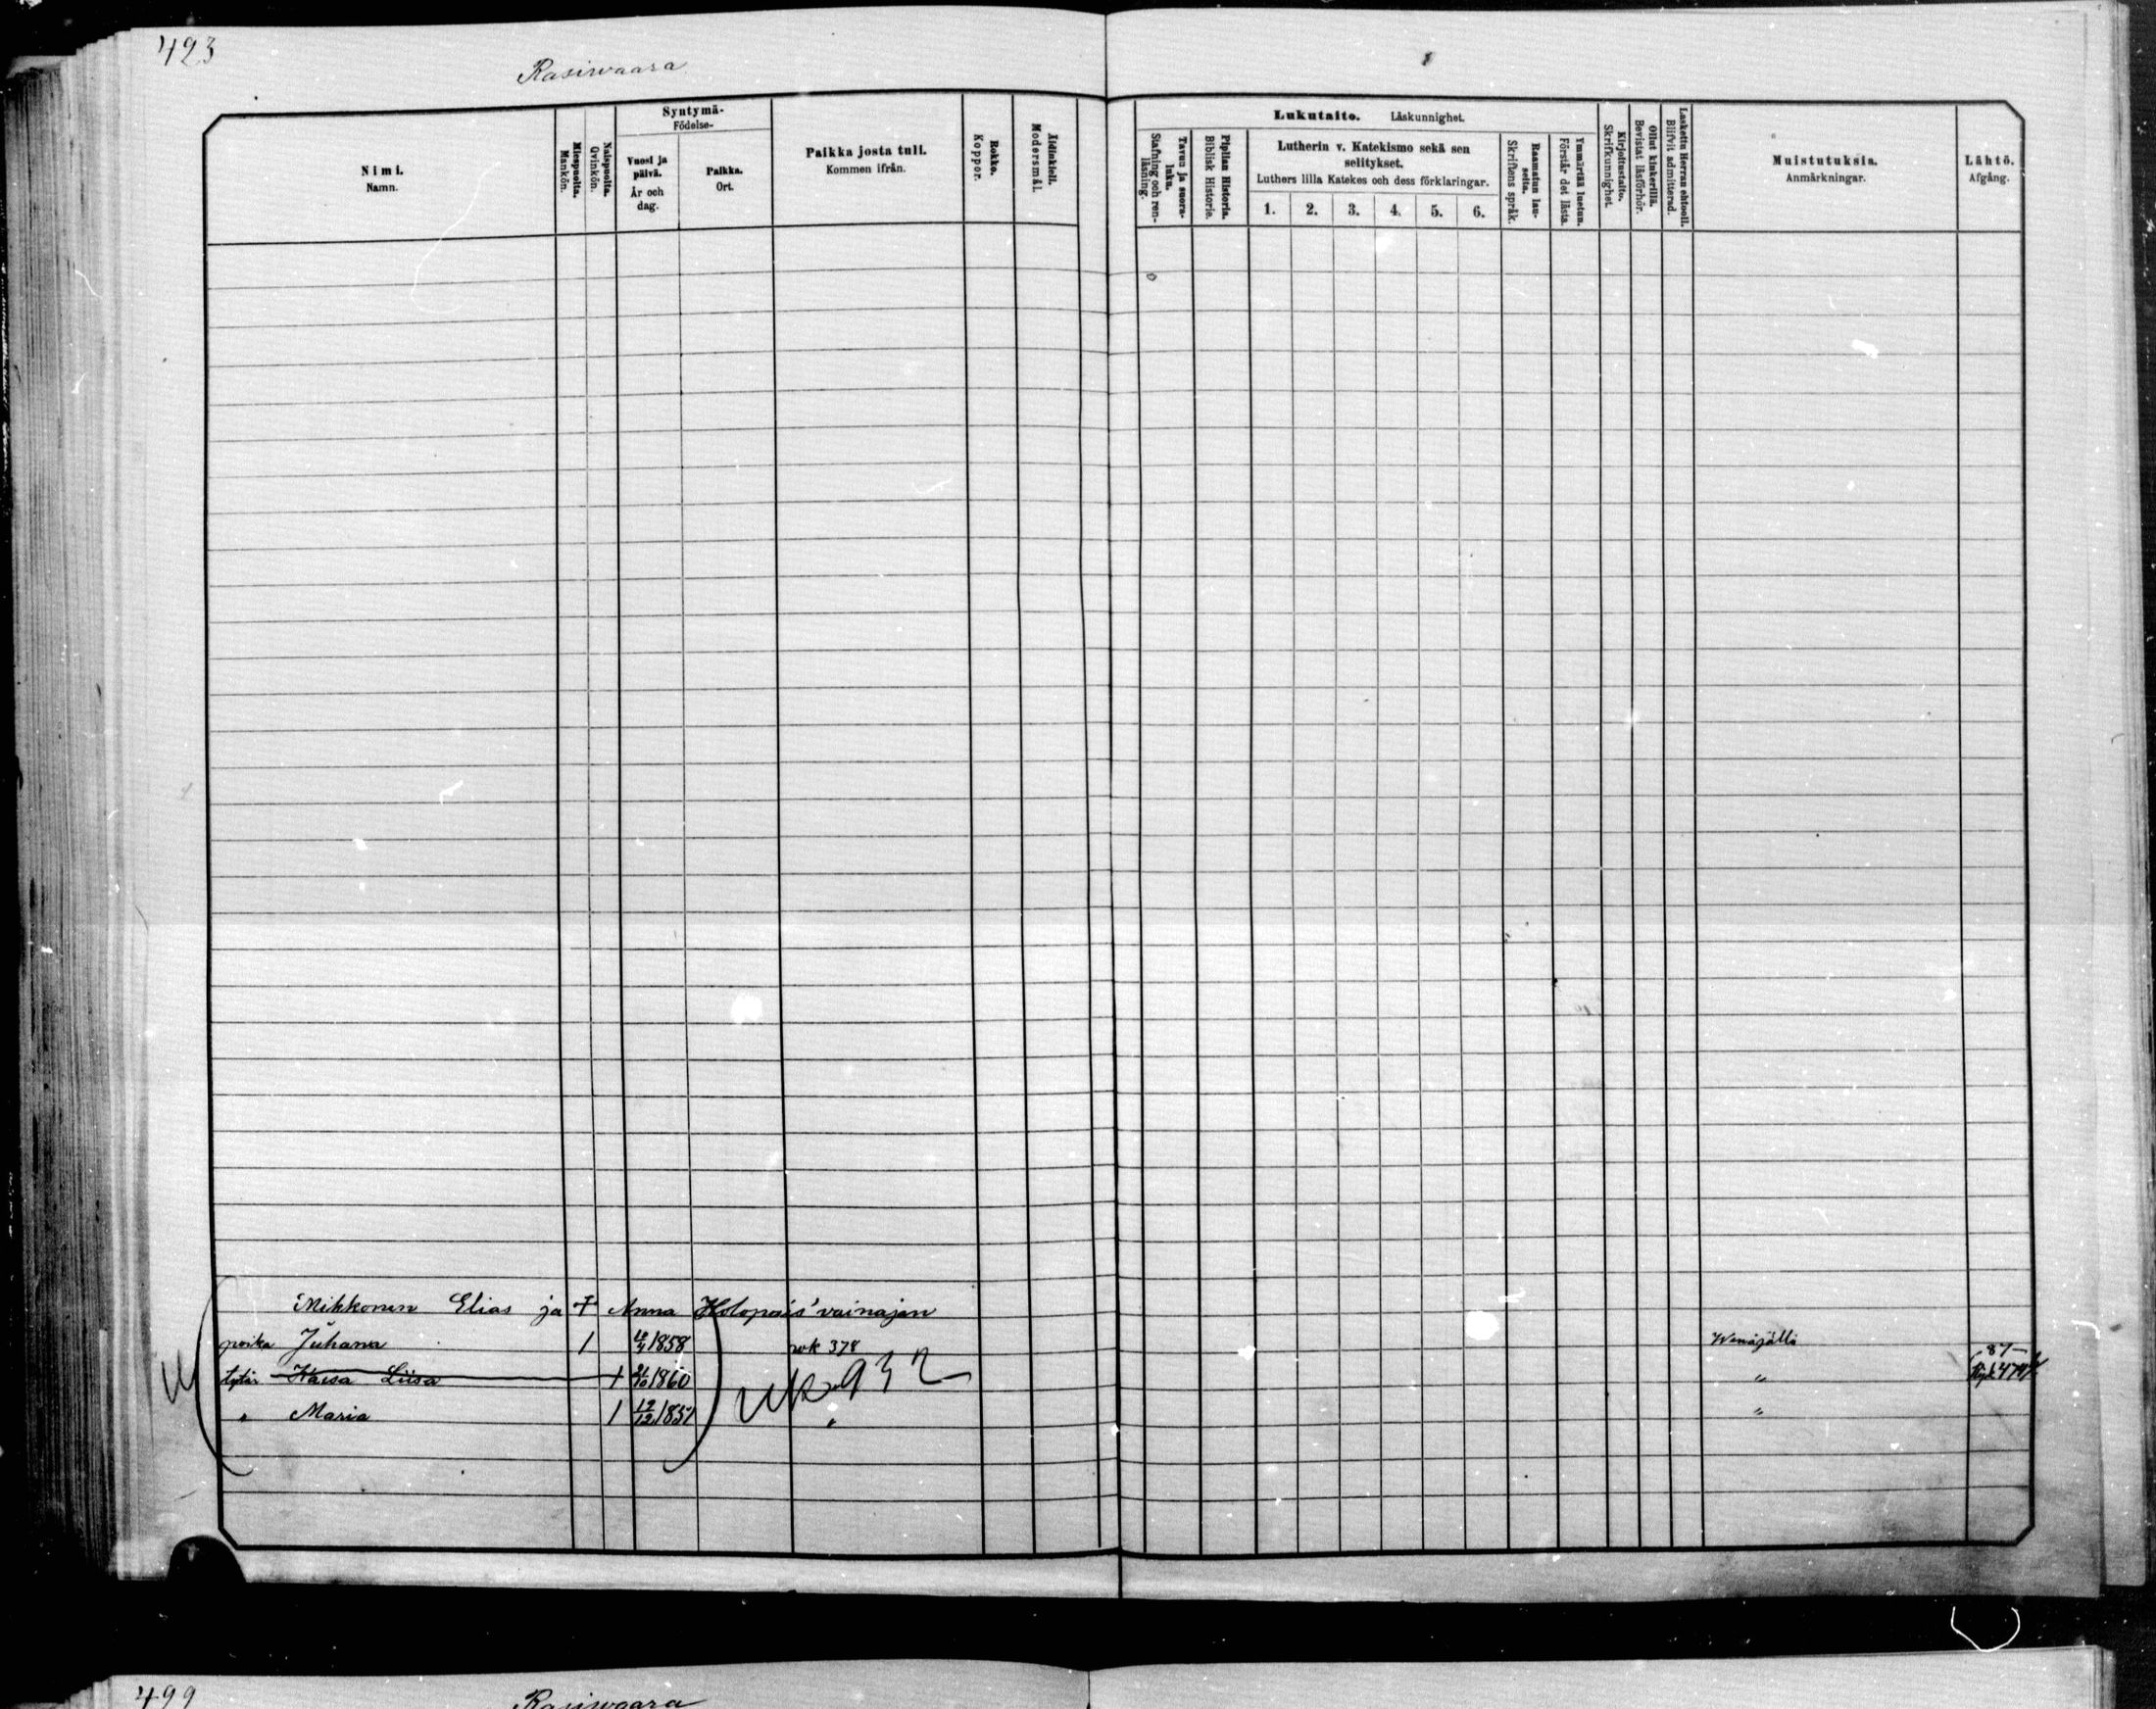 423
Rasiwaara
Nimi.
Namn.
Miespuolia.
Mankön.
Naispuolia.
Qvinkön.
Syntymä-
Födelse-
Vuosi ja päivä.
År och dag.
Paikka.
Ort.
Paikka josta tuli.
Kommen ifrån.
Rokko.
Koppor.
Äidinkieli.
Modersmål.
Lukutaito. Läskunnighet.
Tavuu ja suora-luku.
Stafning och ren-läsning.
Piplian Historia.
Biblisk Historie.
Lutherin v. Katekismo sekä sen
selitykset.
Luthers lilla Katekes och dess förklaringar.
1. 2. 3. 4. 5. 6.
Raamatun lau-seita.
Skriftens språk.
Ymmärtää luetun.
Förstår det lästa.
Kirjoitustaito.
Skrifkunnighet.
Ollut kinkerillä.
Bevistat läsförhör.
Laskettu Herran ehtooll.
Blifvit admitterad.
Muistutuksia.
Anmärkningar.
Lähtö.
Afgång.
Mikkonen Elias ja Anna Holopais' vainajan
poika Juhana 1 1858 rvk 378
tytär Kaisa Liisa 1 1860 932 "
" Maria 1 12/12 1851 " "
499
Rasiwaara